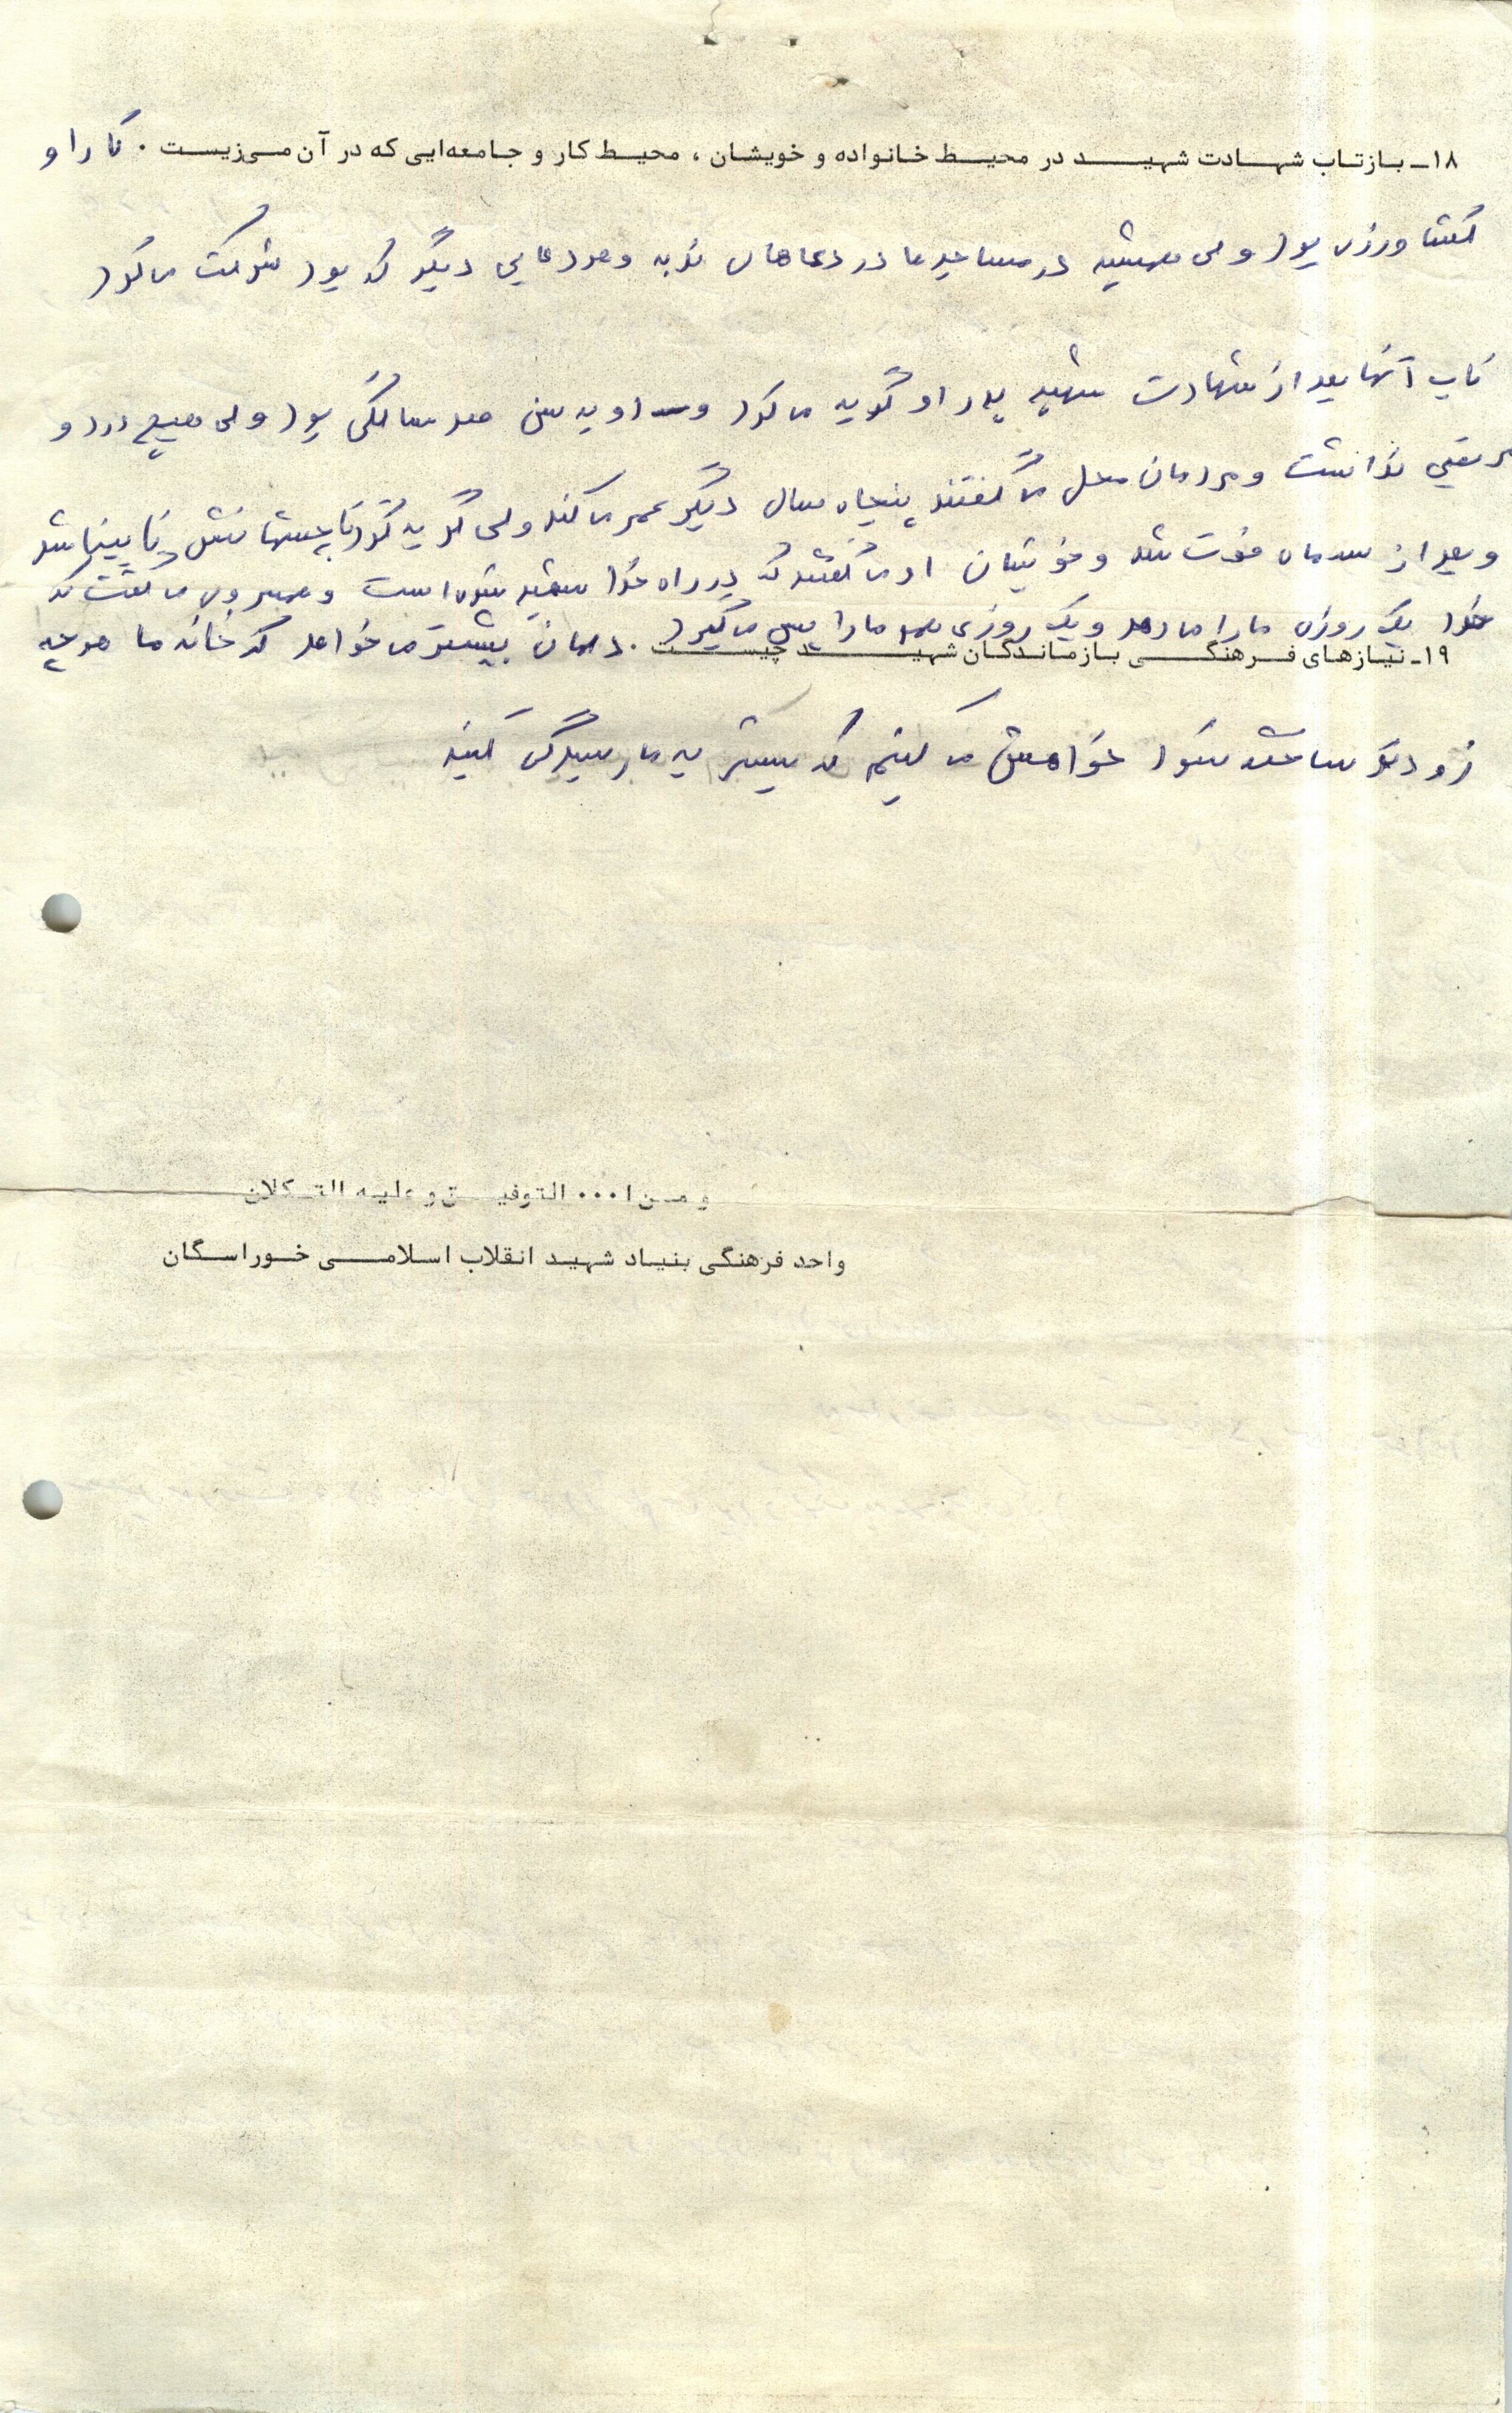 ۱۸ـ بازتاب شهادت شهید در محیط خانواده و خویشان ، محیط کار و جامعه‌ایی که در آن می‌زیست . کار او
کشاورزی بود ولی همیشه در مساجدها در دعاهای ندبه و هر دعایی دیگر که بود شرکت می‌کرد
آنها بعد از شهادت شهید پدر او گریه می‌کرد و او به سن صد سالگی بود ولی هیچ درد و
مریضی نداشت و مردمان محل می‌گفتند پنجاه سال دیگر عمر می‌کند ولی گریه کرد تا چشمهانش نابینا شد
و بعد از سه ماه فوت شد و خویشان او می‌گفتند که در راه خدا شهید شده است و می‌گفت که
خدا یک روزی ما را می‌دهد و یک روزی همه ما را پس می‌گیرد
۱۹ـ نیازهای فرهنگی بازماندگان شهید چیست . دلمان بیشتر می‌خواهد که خانه ما هر چه
زودتر ساخته شود خواهش می‌کنیم که بیشتر به ما رسیدگی کنید
و من ا... التوفیق و علیه التکلان
واحد فرهنگی بنیاد شهید انقلاب اسلامی خوراسگان